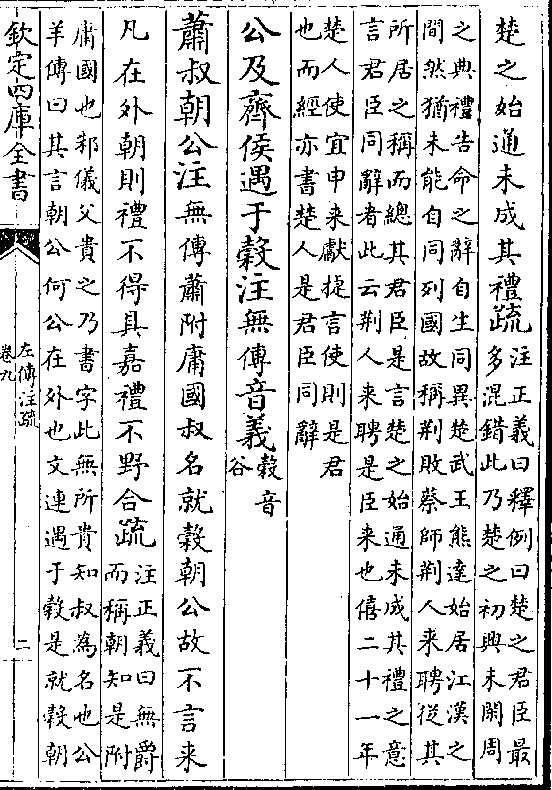 楚之始通未成其禮疏注正義曰釋例曰楚之君臣最
多混錯此乃楚之初興未開周
之典禮告命之辭自生同異楚武王熊達始居江漢之
間然猶未能自同列國故稱荆敗蔡師荆人來聘從其
所居之稱而總其君臣是言楚之始通未成其禮之意
言君臣同辭者此云荆人來聘是臣來也僖二十一年
楚人使宜申來獻捷言使則是君
也而經亦書楚人是君臣同辭
公及齊侯遇于穀注無傳音義穀音
谷
蕭叔朝公注無傳蕭附庸國叔名就穀朝公故不言來
凡在外朝則禮不得具嘉禮不野合疏注正義曰無爵
而稱朝知是附
庸國也邾儀父貴之乃書字此無所貴知叔為名也公
羊傳曰其言朝公何公在外也文連遇于穀是就穀朝
欽定四庫全書
左傳注疏
卷九
二